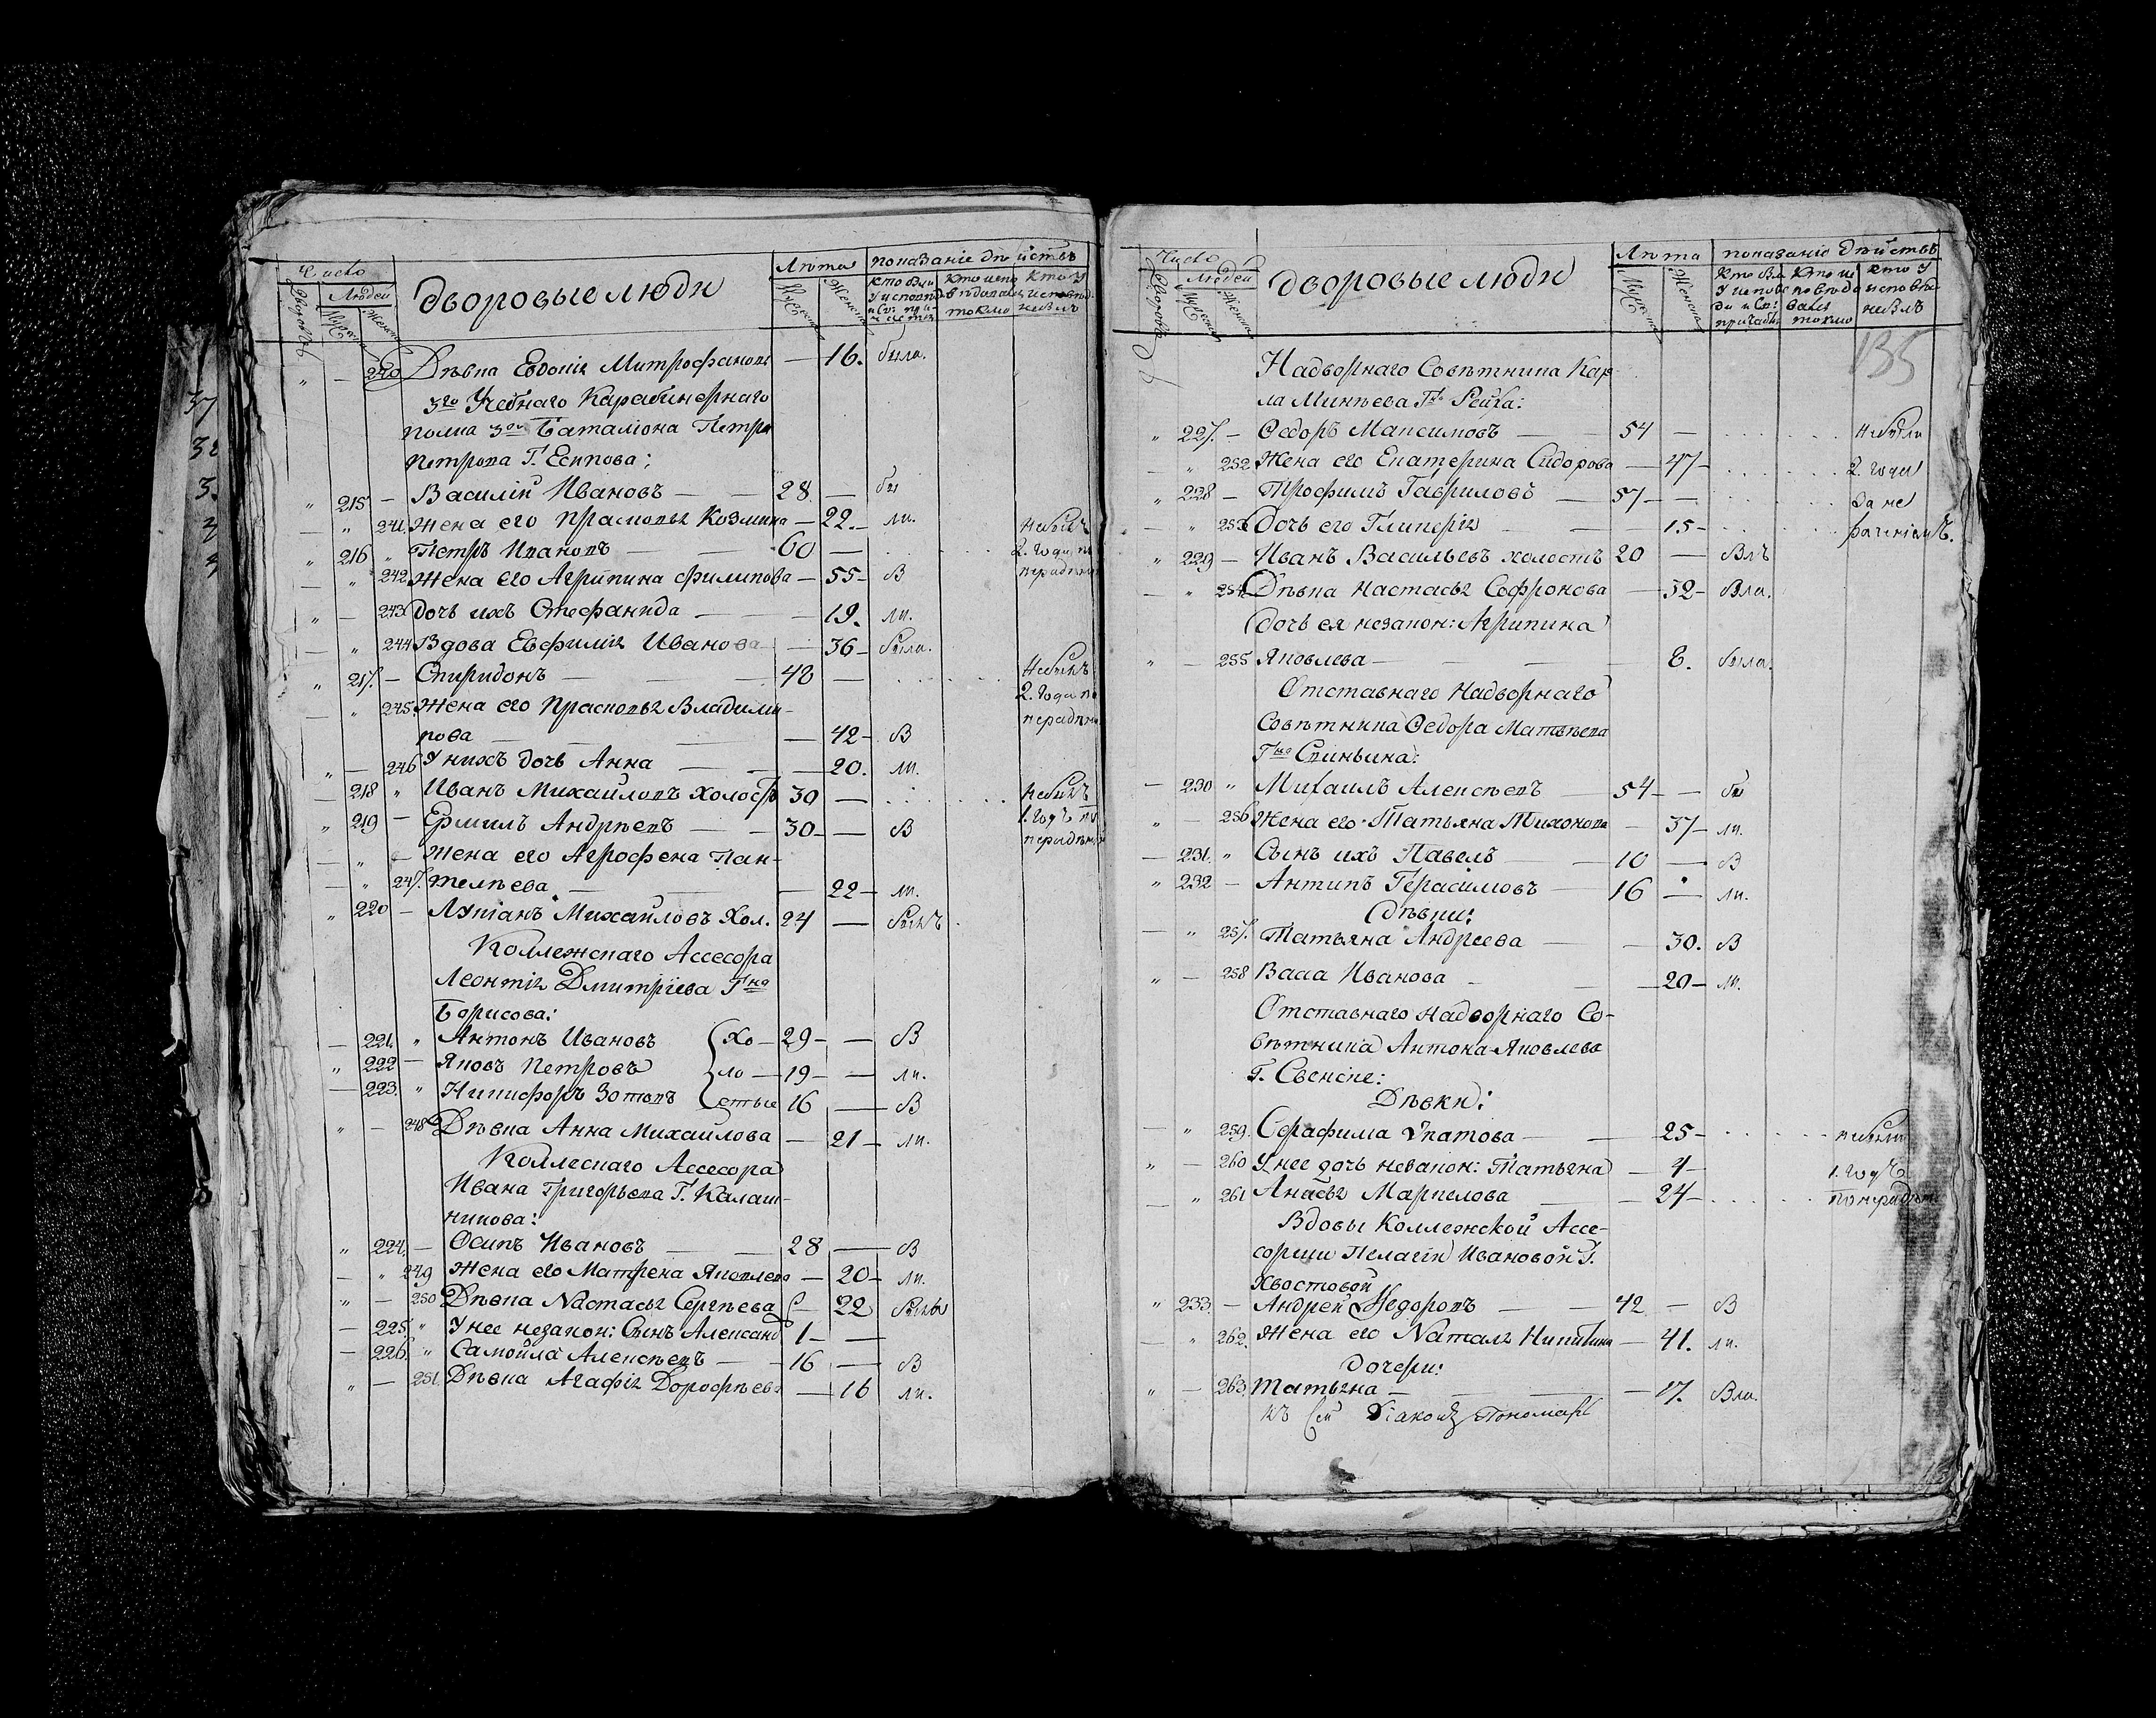 Число
Людей
Дворовые люди
Лѣта
показаніе дѣйствъ
240 Дѣвка Евдокія Митрофанова — 16. была.
3го Учебнаго Карабинернаго
полка 3го Баталіона Петра
Петрова Г. Есипова:
215 — Василій Ивановъ — 28 — бы
241 Жена его Прасковья Козмина — 22. ли. небылъ
216 Петръ Ивановъ — 60 — 2. года по
242 Жена его Агрипина Филипова — 55 — В
243 Дочь ихъ Стефанида — 19. ли.
244 Вдова Евфимія Иванова — 36 — была.
217. — Спиридонъ — 48 — небылъ
2. года по
245. Жена его Прасковья Владими-
рова — 42 — В
246 У нихъ дочь Анна — 20. ли.
218 Иванъ Михайловъ холостъ 30 — небылъ
219 — Ермилъ Андрѣевъ — 30 — В 1. годъ по
Жена его Агрофена Пан-
247. телѣева — 22 — ли.
220 — Лукіанъ Михайловъ Хол. 24 — былъ
Коллежскаго Ассесора
Леонтія Дмитріева Гна
Борисова:
221. Антонъ Ивановъ Хо — 29 — В
222 — Яковъ Петровъ ло — 19 — ли.
223. Никифоръ Зотовъ стые 16 — В
248 Дѣвка Анна Михайлова — 21 — ли.
Коллескаго Ассесора
Ивана Григорьева Г. Калаш-
никова:
224. — Осипъ Ивановъ — 28 — В
249 Жена его Матрена Яковлева — 20 — ли.
250 Дѣвка Настасья Сергѣева — 22 были
225. У нее незакон: Сынъ Александ 1 —
226. Самойла Алексѣевъ — 16 — В
251. Дѣвка Агафія Дорофѣева — 16 ли.
Число
Людей
Дворовые люди
Лѣта
показаніе дѣйствъ
135
Надворнаго Совѣтника Кар
ла Минѣева Гна Рейха:
227. — Федоръ Максимовъ — 54 — небыли
252 Жена его Екатерина Сидорова — 47 — 2. года
228 — Трофимъ Гавриловъ — 57 — за не
253 Дочь его Гликерія — 15 —
229 — Иванъ Васильевъ холостъ 20 — Былъ
254 Дѣвка Настасья Софронова — 32 — Была.
Дочь ея незакон: Агрипина
255 Яковлева — 8. была.
Отставнаго Надворнаго
Совѣтника Федора Матвѣева
Гна Спиньина:
230 Михаилъ Алексѣевъ — 54 — бы
256 Жена его Татьяна — 37 — ли.
231. Сынъ ихъ Павелъ — 10 — В
232 — Антипъ Герасимовъ — 16 — ли.
Дѣвки:
257. Татьяна Андреева — 30. В
258 Васа Иванова — 20 — ли.
Отставнаго Надворнаго Со-
вѣтника Антона Яковлева
Г. Свенске:
Дѣвки:
259. Серафима Ипатова — 25 — небыли
260 У нее дочь незакон: Татьяна — 4 — 1. годъ
261 Анасья Маркелова — 24 —
Вдовы Коллежской Ассе-
сорши Пелагіи Ивановой Г.
Хвостовой
233. — Андрей Федоровъ — 42 — В
262. Жена его Наталья Никитина — 41. ли.
Дочери:
263. Татьяна — 17. Была.
къ сей Діаконъ Пономарь